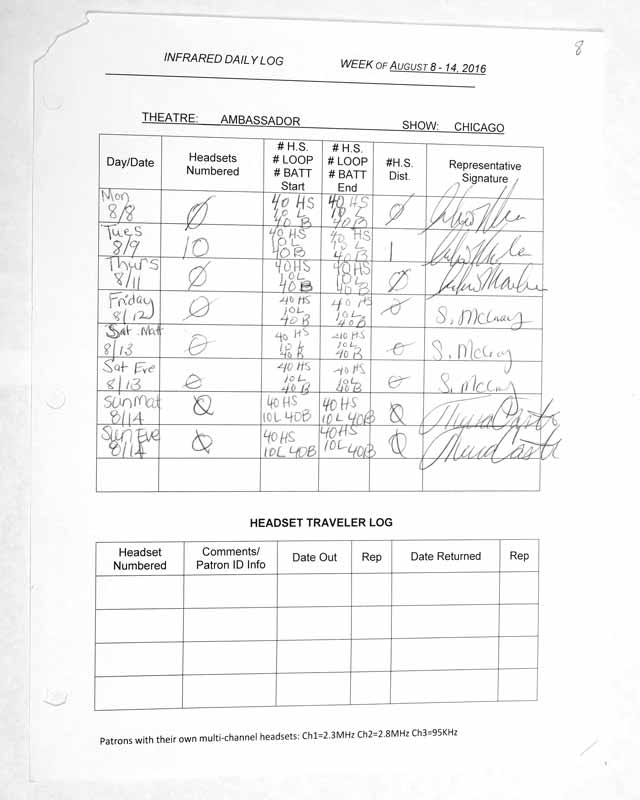 8
INFRARED DAILY LOG WEEK OF AUGUST 8 - 14, 2016
THEATRE: AMBASSADOR SHOW: CHICAGO
Day/Date Headsets Numbered # H.S. # LOOP # BATT Start # H.S. # LOOP # BATT End #H.S. Dist. Representative Signature
Mon 8/8 Ø 40 HS 10 L 40 B 40 HS 10 L 40 B Ø
Tues 8/9 10 40 HS 10 L 40B 40 HS 10 L 40 B 1
Thurs 8/11 Ø 40HS 10L 40B 40 HS 10L 40 B Ø
Friday 8/12 Ø 40 HS 10L 40B 40 HS 10L 40B Ø S. McCray
Sat Matt 8/13 Ø 40 HS 10 L 40 B 40 HS 10L 40B Ø S. McCray
Sat Eve 8/13 Ø 40 HS 10L 40B 40 HS 10L 40B Ø S. McCray
Sun Mat 8/14 Ø 40 HS 10L 40B 40 HS 10L 40B Ø
Sun Eve 8/14 Ø 40 HS 10L 40B 40HS 10L 40B Ø
HEADSET TRAVELER LOG
Headset Numbered Comments/ Patron ID Info Date Out Rep Date Returned Rep
Patrons with their own multi-channel headsets: Ch1=2.3MHz Ch2=2.8MHz Ch3=95KHz